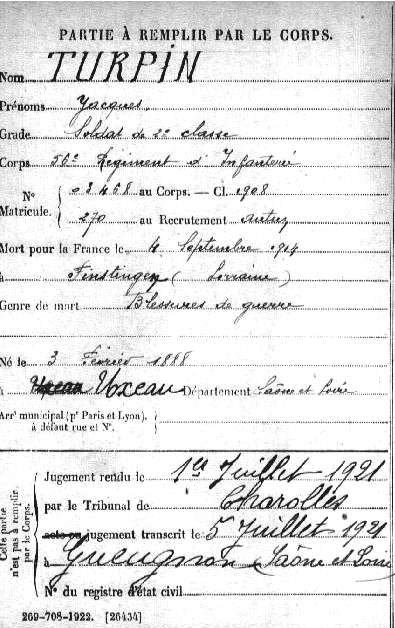 PARTIE À REMPLIR PAR LE CORPS.
Nom TURPIN
Prénoms Jacques.
Grade Soldat de 2e classe
Corps 56e Régiment d'Infanterie
N° Matricule. { 03468 au Corps. — Cl. 1908
270 au Recrutement Autun
Mort pour la France le 4 Septembre 1914
à Finstingen (Lorraine)
Genre de mort Blessures de guerre
Né le 3 Février 1888
à Uxeau Uxeau Département Saône et Loire
Arr^t municipal (p^r Paris et Lyon),
à défaut rue et N°.
Cette partie n'est pas à remplir par le Corps.
Jugement rendu le 1er Juillet 1921
par le Tribunal de Charolles
acte ou jugement transcrit le 5 Juillet 1921
à Gueugnon (Saône et Loire
N° du registre d'état civil
269-708-1922. [26434]